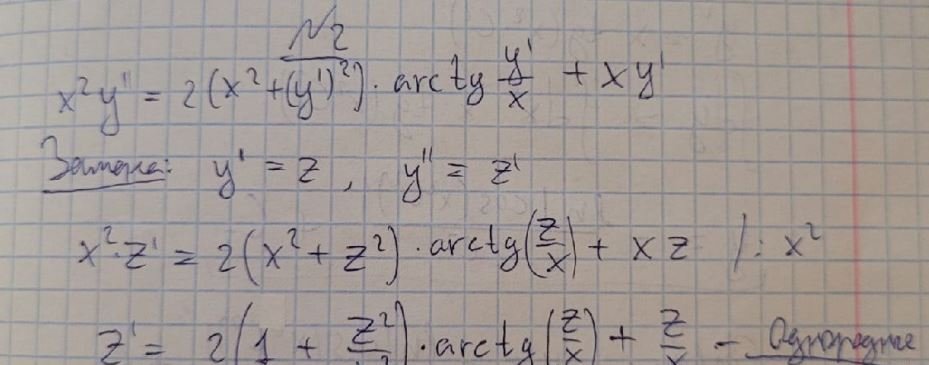 N2
x²y'' = 2(x² + (y')²) · arctg y'/x + xy'
Замена: y' = z, y'' = z'
x²·z' = 2(x² + z²) · arctg(z/x) + xz /: x²
z' = 2(1 + z²/x²) · arctg(z/x) + z/x - Однородное